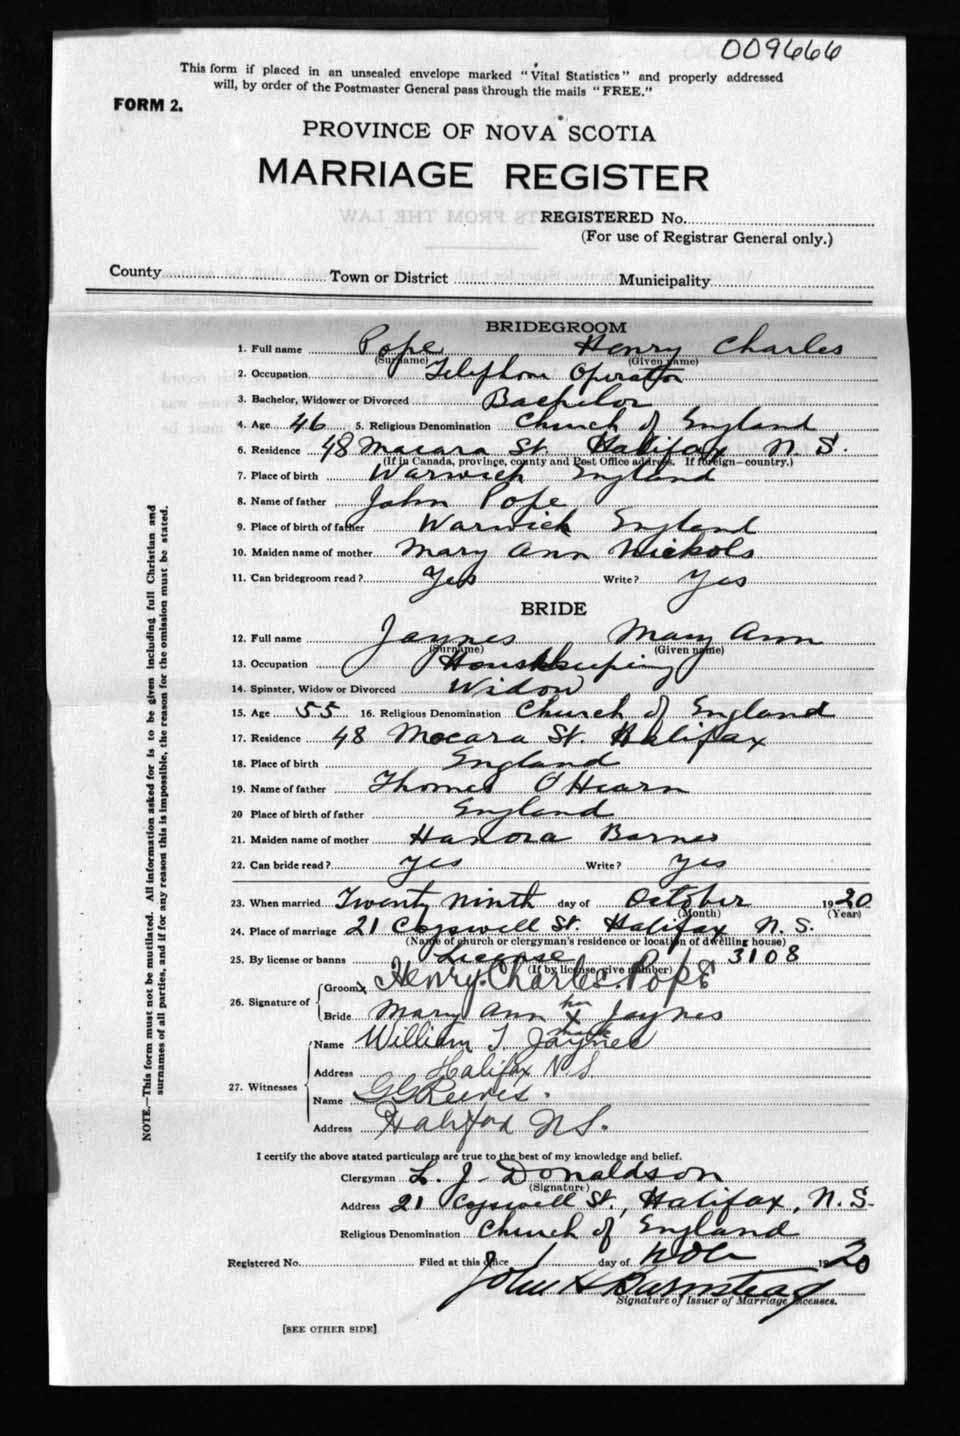 009666
This form if placed in an unsealed envelope marked "Vital Statistics" and properly addressed
will, by order of the Postmaster General pass through the mails "FREE."
FORM 2.
PROVINCE OF NOVA SCOTIA
MARRIAGE REGISTER
REGISTERED No.
(For use of Registrar General only.)
County Town or District Municipality
BRIDEGROOM
1. Full name Pope Henry Charles
(Surname) (Given name)
2. Occupation Telephone Operator
3. Bachelor, Widower or Divorced Bachelor
4. Age 46 5. Religious Denomination Church of England
6. Residence 48 Macara St. Halifax N. S.
(If in Canada, province, county and Post Office address. If foreign—country.)
7. Place of birth Warwick England
8. Name of father John Pope
9. Place of birth of father Warwick England
10. Maiden name of mother Mary Ann Nickols
11. Can bridegroom read? Yes Write? Yes
BRIDE
12. Full name Jaynes Mary Ann
(Surname) (Given name)
13. Occupation Housekeeping
14. Spinster, Widow or Divorced Widow
15. Age 55 16. Religious Denomination Church of England
17. Residence 48 Macara St. Halifax
18. Place of birth England
19. Name of father Thomas O'Hearn
20 Place of birth of father England
21. Maiden name of mother Hanora Barnes
22. Can bride read? Yes Write? Yes
23. When married Twenty ninth day of October 1920
(Month) (Year)
24. Place of marriage 21 Cogswell St. Halifax N. S.
(Name of church or clergyman's residence or location of dwelling house)
25. By license or banns License 3108
(If by license, give number)
26. Signature of
Groom x Henry Charles Pope
Bride Mary Ann her x mark Jaynes
27. Witnesses
Name William T. Jaynes
Address Halifax N.S.
Name G G Reeves.
Address Halifax N S.
I certify the above stated particulars are true to the best of my knowledge and belief.
Clergyman L. J. Donaldson
(Signature)
Address 21 Cogswell St., Halifax, N. S.
Religious Denomination Church of England
Registered No. Filed at this office 1 day of Nov 1920
John H Barnstead
Signature of Issuer of Marriage Licenses.
[SEE OTHER SIDE]
NOTE.—This form must not be mutilated. All information asked for is to be given including full Christian and
surnames of all parties, and if for any reason this is impossible, the reason for the omission must be stated.